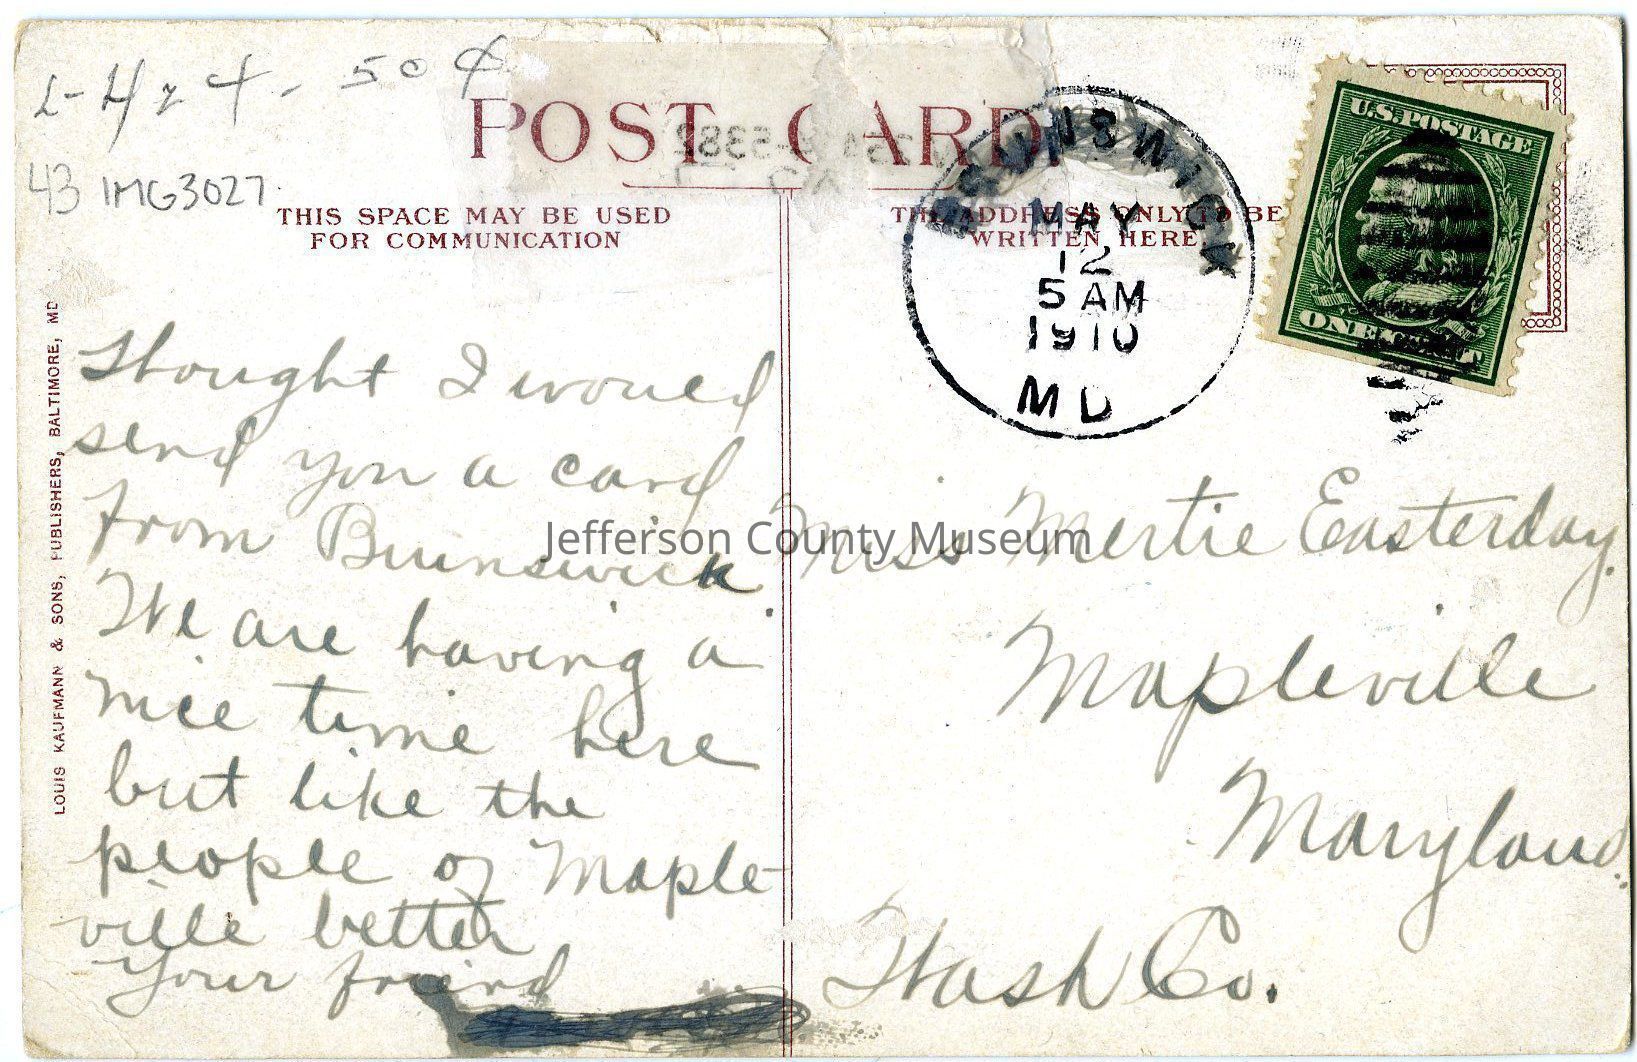 L-H24-50¢
43 IMG3027
POST CARD
THIS SPACE MAY BE USED
FOR COMMUNICATION
THE ADDRESS ONLY TO BE
WRITTEN HERE.
BRUNSWICK
MAY
12
5 AM
1910
MD
U.S. POSTAGE
ONE CENT
LOUIS KAUFMANN & SONS, PUBLISHERS, BALTIMORE, MD
Thought I would
send you a card
from Brunswick
We are having a
nice time here
but like the
people of Maple-
ville better
Your friend
Miss Mertie Easterday.
Mapleville
Maryland.
Wash Co.
Jefferson County Museum